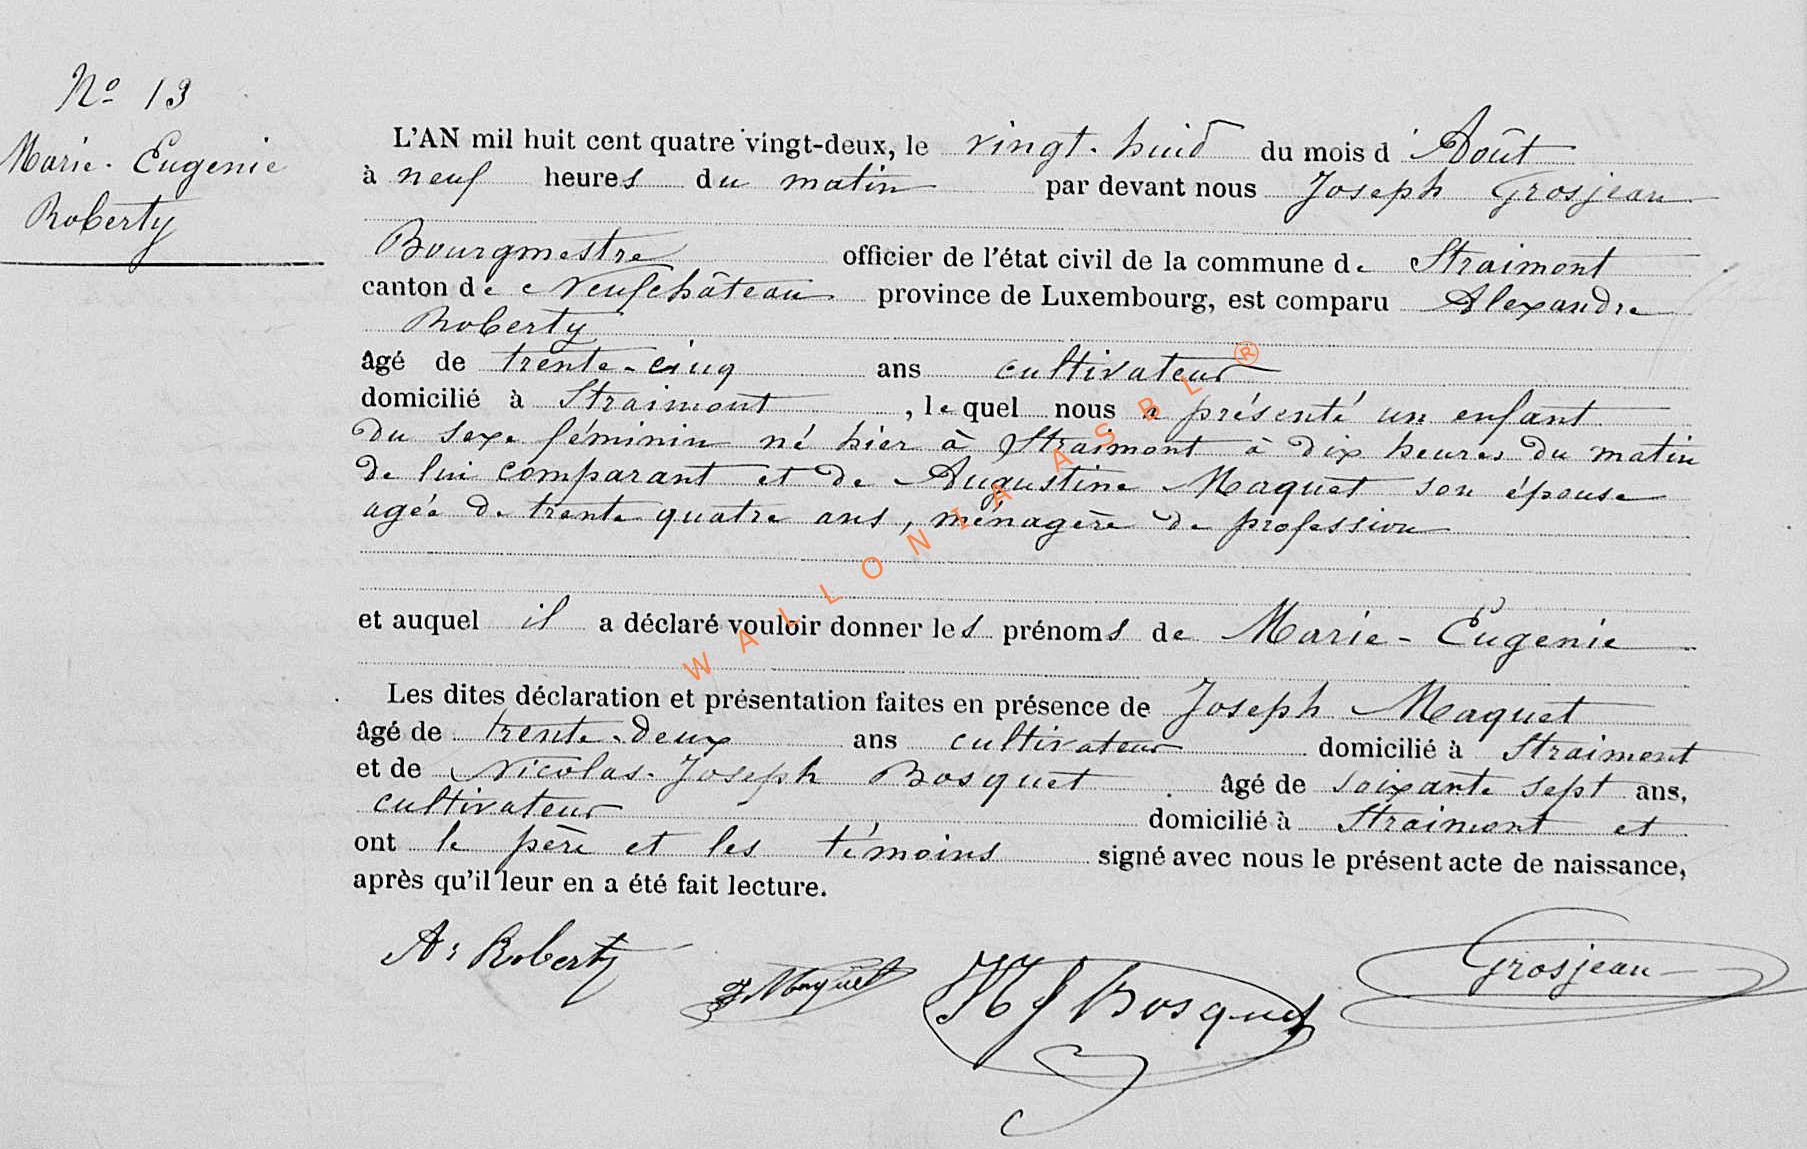 Nº 13
Marie-Eugenie
Roberty
L'AN mil huit cent quatre vingt-deux, le vingt-huit du mois d'Août
à neuf heures du matin par devant nous Joseph Grosjean
Bourgmestre officier de l'état civil de la commune de Straimont
canton de Neufchâteau province de Luxembourg, est comparu Alexandre
Roberty
âgé de trente-cinq ans cultivateur
domicilié à Straimont, lequel nous a présenté un enfant
du sexe féminin né hier à Straimont à dix heures du matin
de lui comparant et de Augustine Maquet son épouse
agée de trente quatre ans, ménagère de profession
et auquel il a déclaré vouloir donner les prénoms de Marie-Eugenie
Les dites déclaration et présentation faites en présence de Joseph Maquet
âgé de trente-deux ans cultivateur domicilié à Straimont
et de Nicolas-Joseph Bosquet âgé de soixante sept ans,
cultivateur domicilié à Straimont et
ont le père et les témoins signé avec nous le présent acte de naissance,
après qu'il leur en a été fait lecture.
A: Roberty
J Maquet
NJ Bosquet
Grosjean
WALLONIA ASBL ®